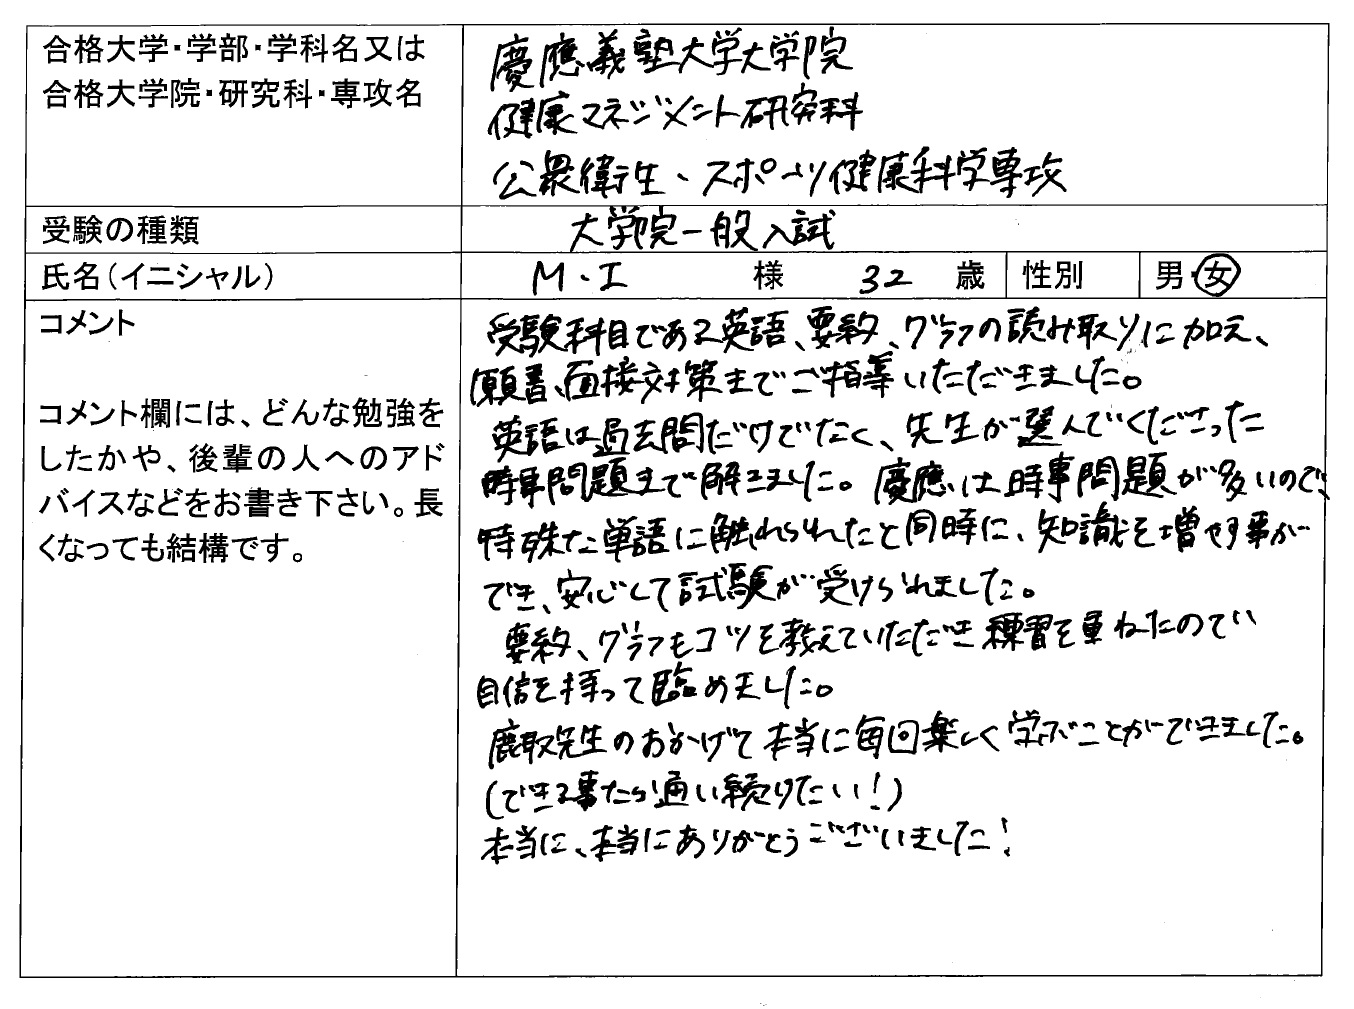 合格大学・学部・学科名又は
合格大学院・研究科・専攻名
慶應義塾大学大学院
健康マネジメント研究科
公衆衛生・スポーツ健康科学専攻
受験の種類
大学院一般入試
氏名(イニシャル)
M・I 様 32 歳 性別 男・女
コメント
コメント欄には、どんな勉強を
したかや、後輩の人へのアド
バイスなどをお書き下さい。長
くなっても結構です。
受験科目である英語、要約、グラフの読み取りに加え、
願書、面接対策までご指導いただきました。
英語は過去問だけでなく、先生が選んでくださった
時事問題まで解きました。慶應は時事問題が多いので、
特殊な単語に触れられたと同時に、知識を増やす事が
でき、安心して試験が受けられました。
要約、グラフもコツを教えていただき練習を重ねたので
自信を持って臨めました。
鹿取先生のおかげで本当に毎回楽しく学ぶことができました。
(できる事なら通い続けたい!)
本当に、本当にありがとうございました!